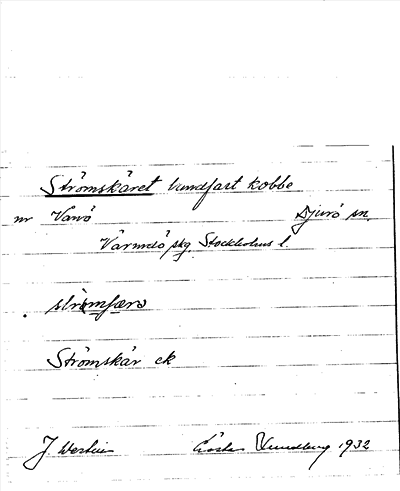 Strömskäret landfast kobbe
nr Vånö Djurö sn.
Värmdö skg. Stockholms l.
Strömskär ek
J. Westin Gösta Lundberg 1932